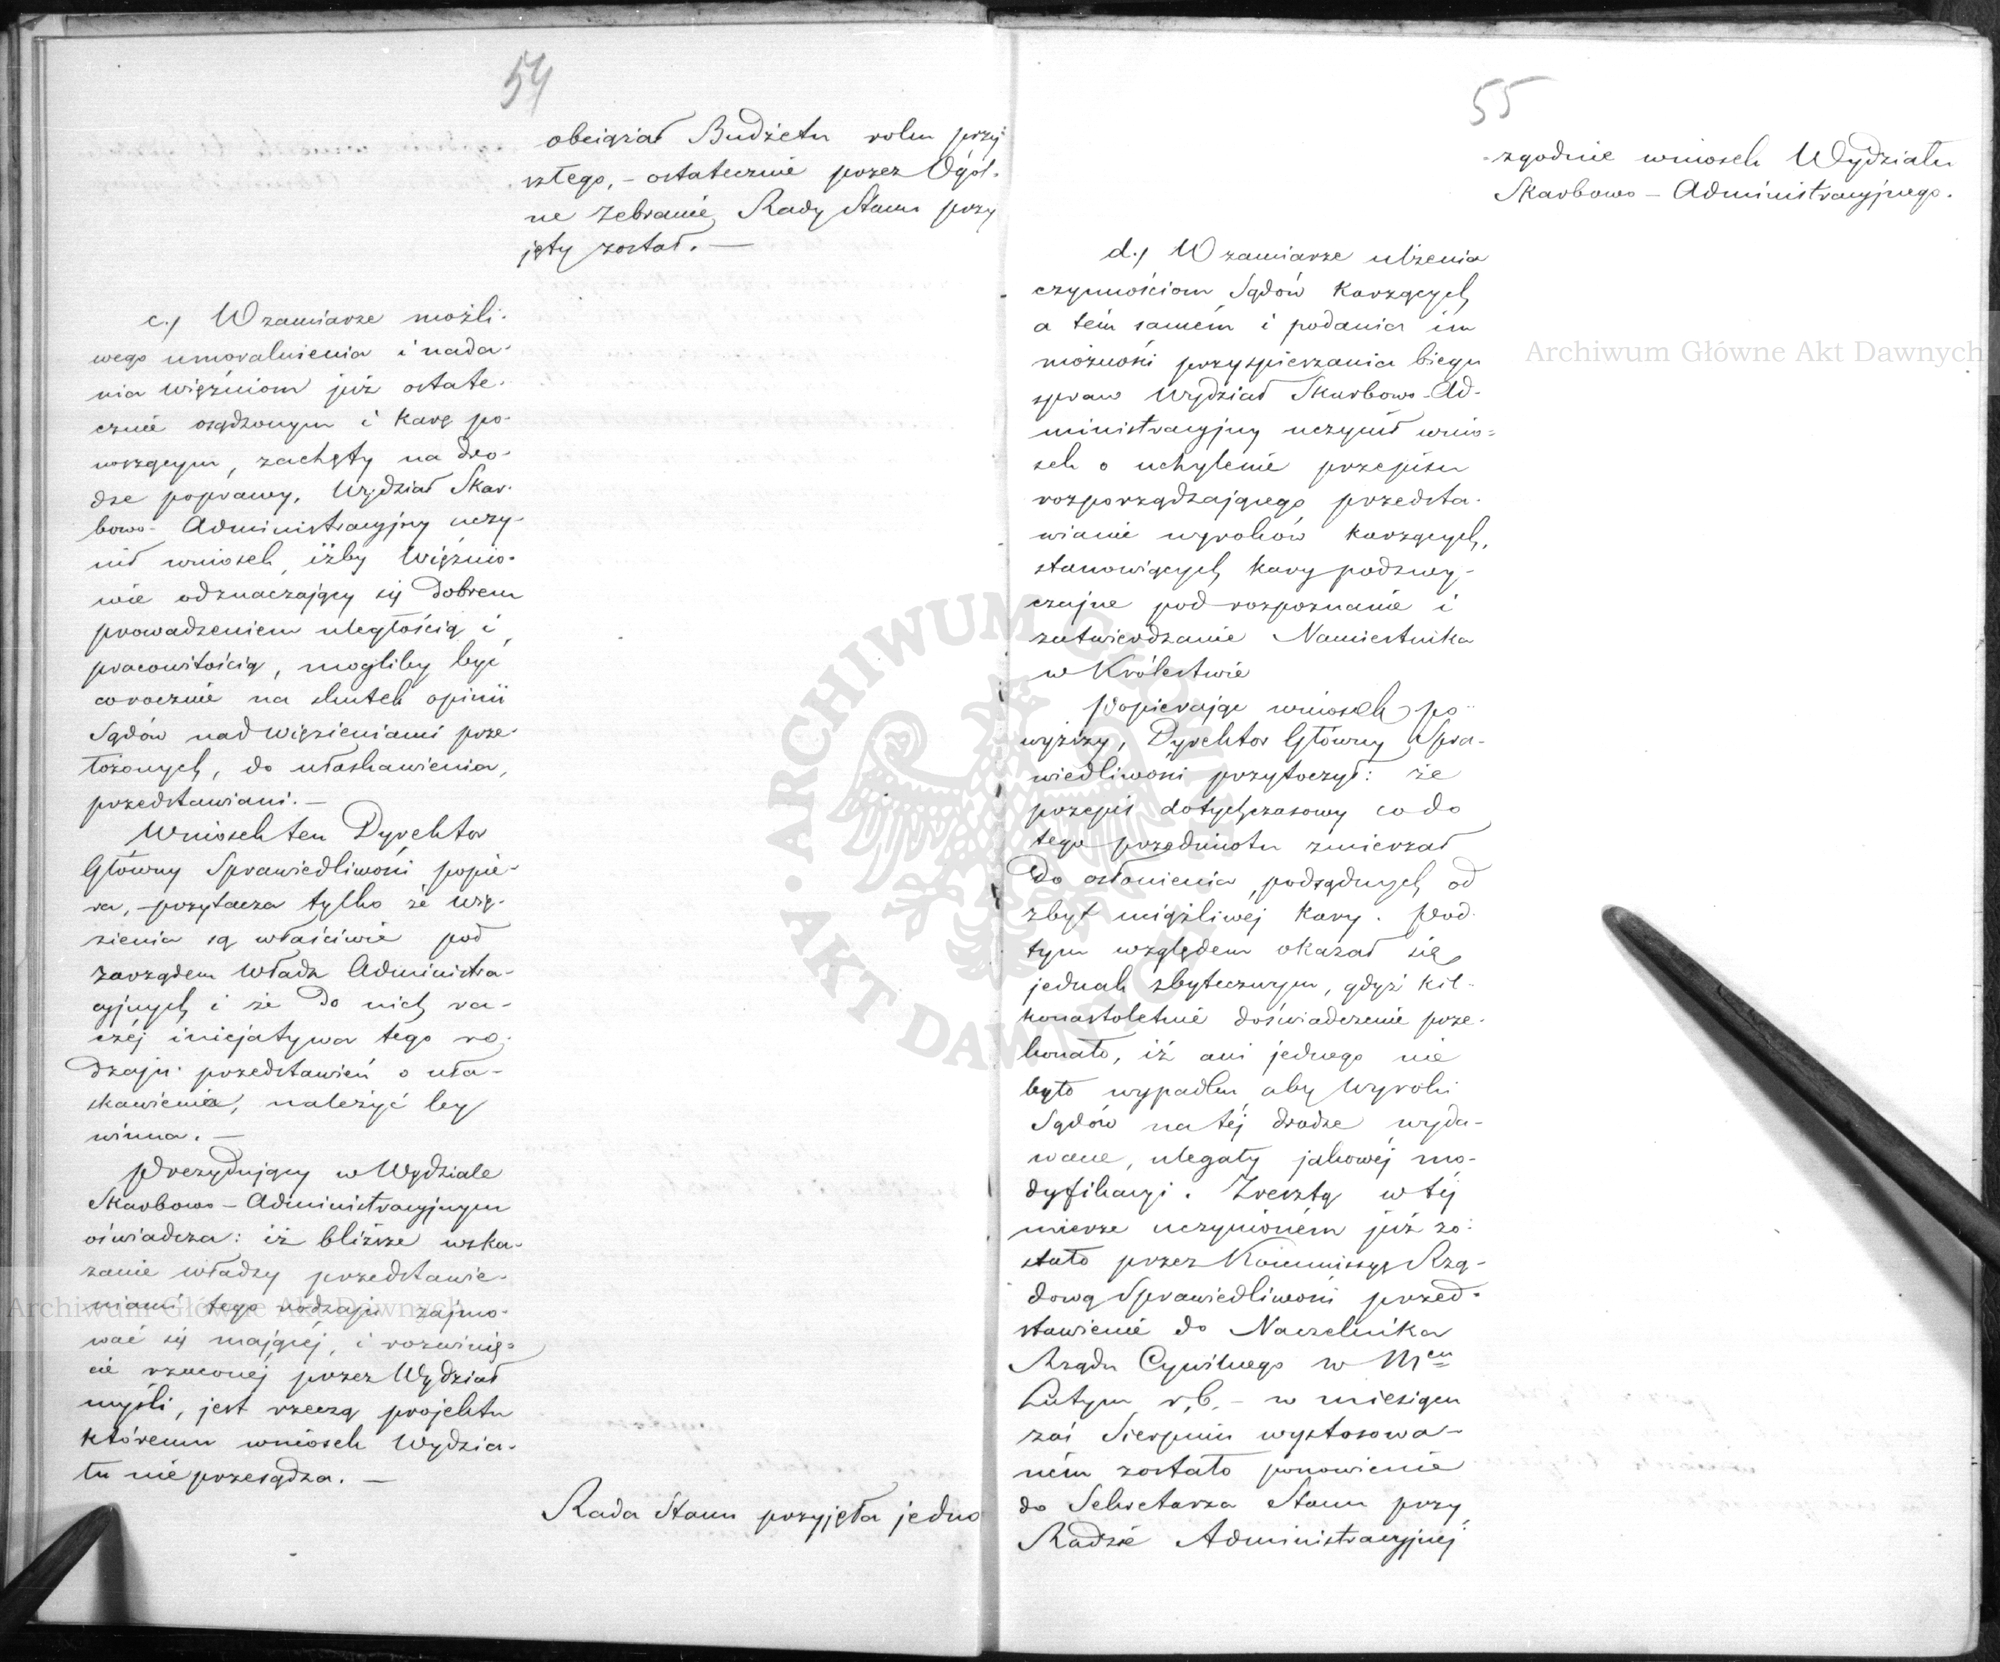 54
obciążał Budżetu roku przy-
szłego, – ostatecznie przez Ogól-
ne Zebranie Rady Stanu przy
jęty został. —
c./ W zamiarze możli-
wego umoralnienia i nada-
nia więźniom już ostate-
cznie osądzonym i karę po-
noszącym, zachęty na dro-
dze poprawy, Wydział Skar-
bowo-Administracyjny uczy-
nił wniosek, iżby Więźnio-
wie odznaczający się dobrem
prowadzeniem uległością i
pracowitością, mogliby być
corocznie na skutek opinii
Sądów nad więzieniami prze-
łożonych, do ułaskawienia,
przedstawiani. —
Wniosek ten Dyrektor
Główny Sprawiedliwości popie-
ra, – przytacza tylko że wię-
zienia są właściwie pod
zarządem Władz Administra-
cyjnych i że do nich ra-
czéj inicjatywa tego ro-
dzaju przedstawień o uła-
skawienie, należyć by
winna. —
Prezydujący w Wydziale
Skarbowo – Administracyjnym
oświadcza: iż bliższe wska-
zanie władzy przedstawie-
niami tego rodzaju zajmo-
wać się mającéj, i rozwinię-
cie rzuconéj przez Wydział
myśli, jest rzeczą projektu
któremu wniosek Wydzia-
łu nie przesądza. —
Rada Stanu przyjęła jedno
55
-zgodnie wniosek Wydziału
Skarbowo – Administracyjnego.
d./ W zamiarze ulżenia
czynnościom Sądów Karzących
a tém samém i podania im
możności przyspieszania biegu
spraw Wydział Skarbowo-Ad-
ministracyjny uczynił wnio-
sek o uchylenie przepisu
rozporządzającego przedsta-
wianie wyroków karzących,
stanowiących kary podzwy-
czajne pod rozpoznanie i
zatwierdzanie Namiestnika
w Królestwie
Popierając wniosek po-
wyższy, Dyrektor Główny Spra-
wiedliwości przytoczył: że
przepis dotychczasowy co do
tego przedmiotu zmierzał
do osłonienia podsądnych od
zbyt uciążliwéj kary. Pod
tym względem okazał się
jednak zbytecznym, gdyż kil-
konastoletnie doświadczenie prze-
konało, iż ani jednego nie
było wypadku aby Wyroki
Sądów na téj drodze wyda-
wane, uległy jakowéj mo-
dyfikacyi. Zresztą w téj
mierze uczynioném już zo-
stało przez Kommissyę Rzą-
dową Sprawiedliwości przed-
stawienie do Naczelnika
Rządu Cywilnego w Mcu
Lutym r.b. – w miesiącu
zaś Sierpniu wystosowa-
ném zostało ponowienie
do Sekretarza Stanu przy
Radzie Administracyjnéj
Archiwum Główne Akt Dawnych
Archiwum Główne Akt Dawnych
ARCHIWUM GŁÓWNE · AKT DAWNYCH ·